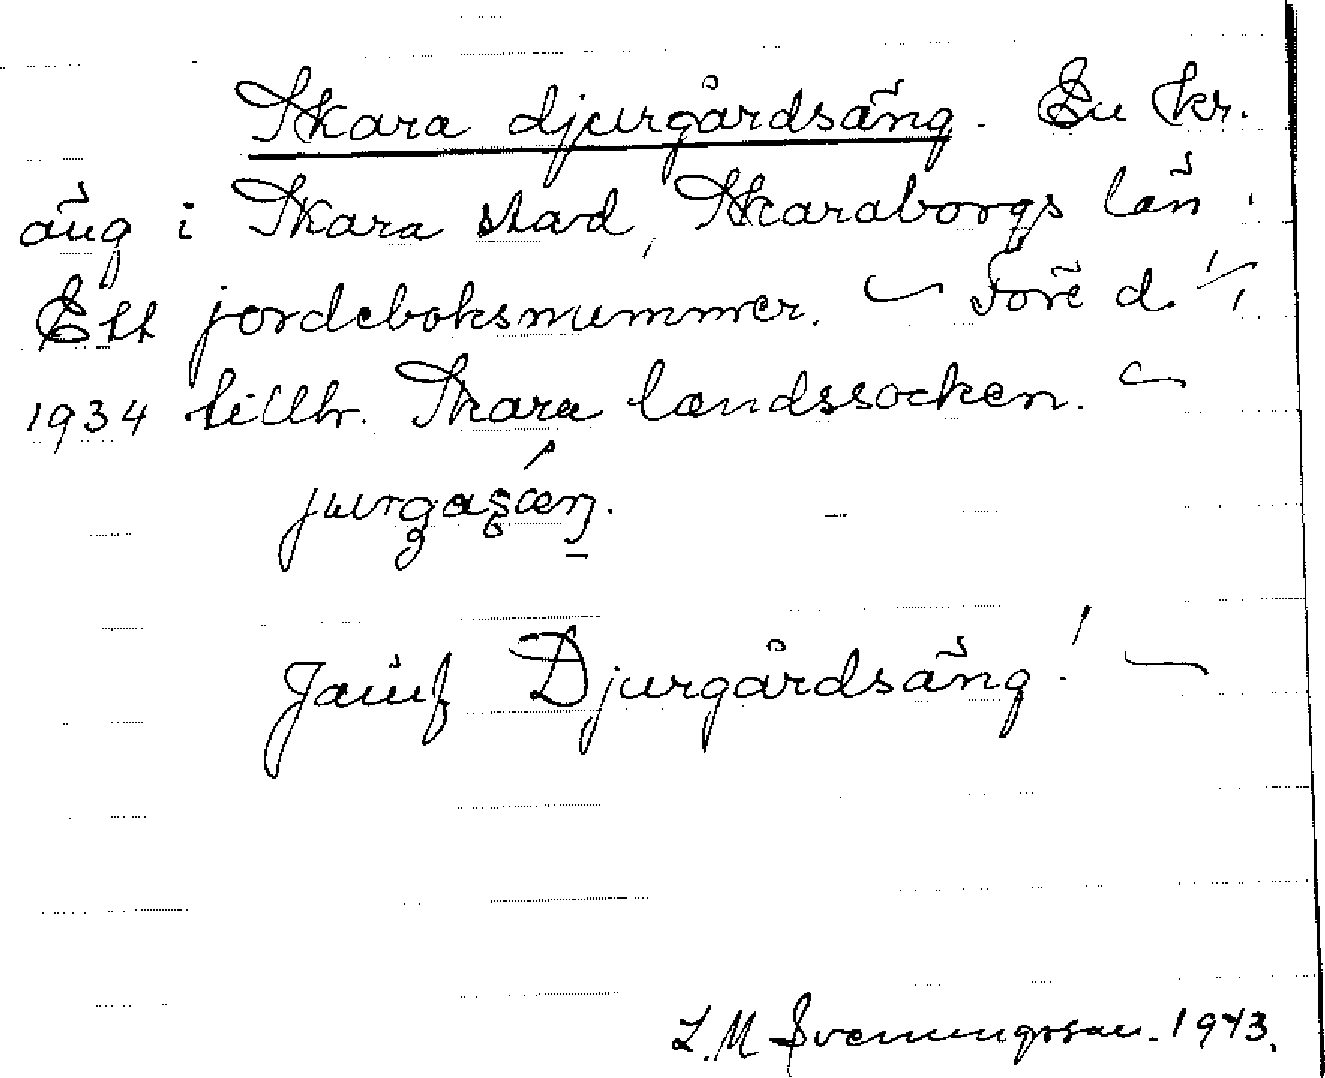 Skara djurgårdsäng. En kr.
äng i Skara stad, Skaraborgs län.
Ett jordeboksnummer. — Före d. 1/1
1934 tillh. Skara landssocken. —
jurgasäŋ.
Jämf Djurgårdsäng! —
L. M Svenungsson. 1943.